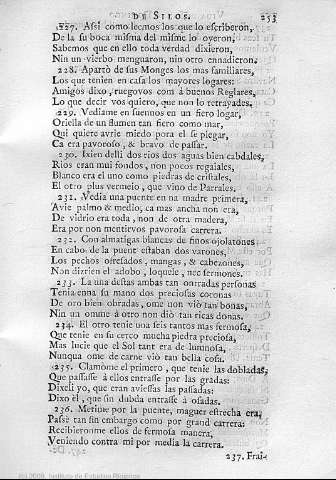 DE SILOS. 253
227. Assi como lecmos los que lo escriberon,
De la su boca misma del misme lo overon,
Sabemos que en ello toda verdad dixieron,
Nin un vierbo menguaron, nin otro ennadieron.
228. Apartò de sus Monges los mas familiares,
Los que tenien en casa los mayores logares:
Amigos dixo, ruegovos com à buenos Reglares,
Lo que decir vos quiero, que non lo retrayades.
229. Vediame en suennos en un fiero logar,
Oriella de un flumen tan fiero como mar,
Qui quiere avrie miedo pora el se plegar,
Ca era pavoroso, & bravo de passar.
230. Ixien delli dos rios dos aguas bien cabdales,
Rios eran mui fondos, non pocos regaiales,
Blanco era el uno como piedras de cristales,
El otro plus vermeio, que vino de Parrales.
231. Vedia una puente en na madre primera,
Avie palmo & medio, ca mas ancha non era,
De vidrio era toda, non de otra madera,
Era por non mentirvos pavorosa carrera.
232. Con almatigas blancas de finos ojolatones
En cabo de la puente estaban dos varones,
Los pechos ofresados, mangas, & cabezones,
Non dizrien el adobo, loquele, nec sermones.
233. La una destas ambas tan onrradas personas
Tenia enna su mano dos preciosas coronas
De oro bien obradas, ome non viò tan bonas,
Nin un omme à otro non diò tan ricas donas.
234. El otro tenie una seis tantos mas fermosa,
Que tenie en su cerco mucha piedra preciosa,
Mas lucie que el Sol tant era de lumnosa,
Nunqua ome de carne viò tan bella cosa.
235. Clamòme el primero, que tenie las dobladas,
Que passasse à ellos entrasse por las gradas:
Dixeli yo, que eran aviessas las passadas:
Dixo èl, que sin dubda entrasse à osadas.
236. Metime por la puente, maguer estrecha era,
Passè tan sin embargo como por grand carrera:
Recibieronme ellos de fermosa manera,
Veniendo contra mi por media la carrera.
237. Frai-
(c) 2008 Instituto de Estudios Riojanos